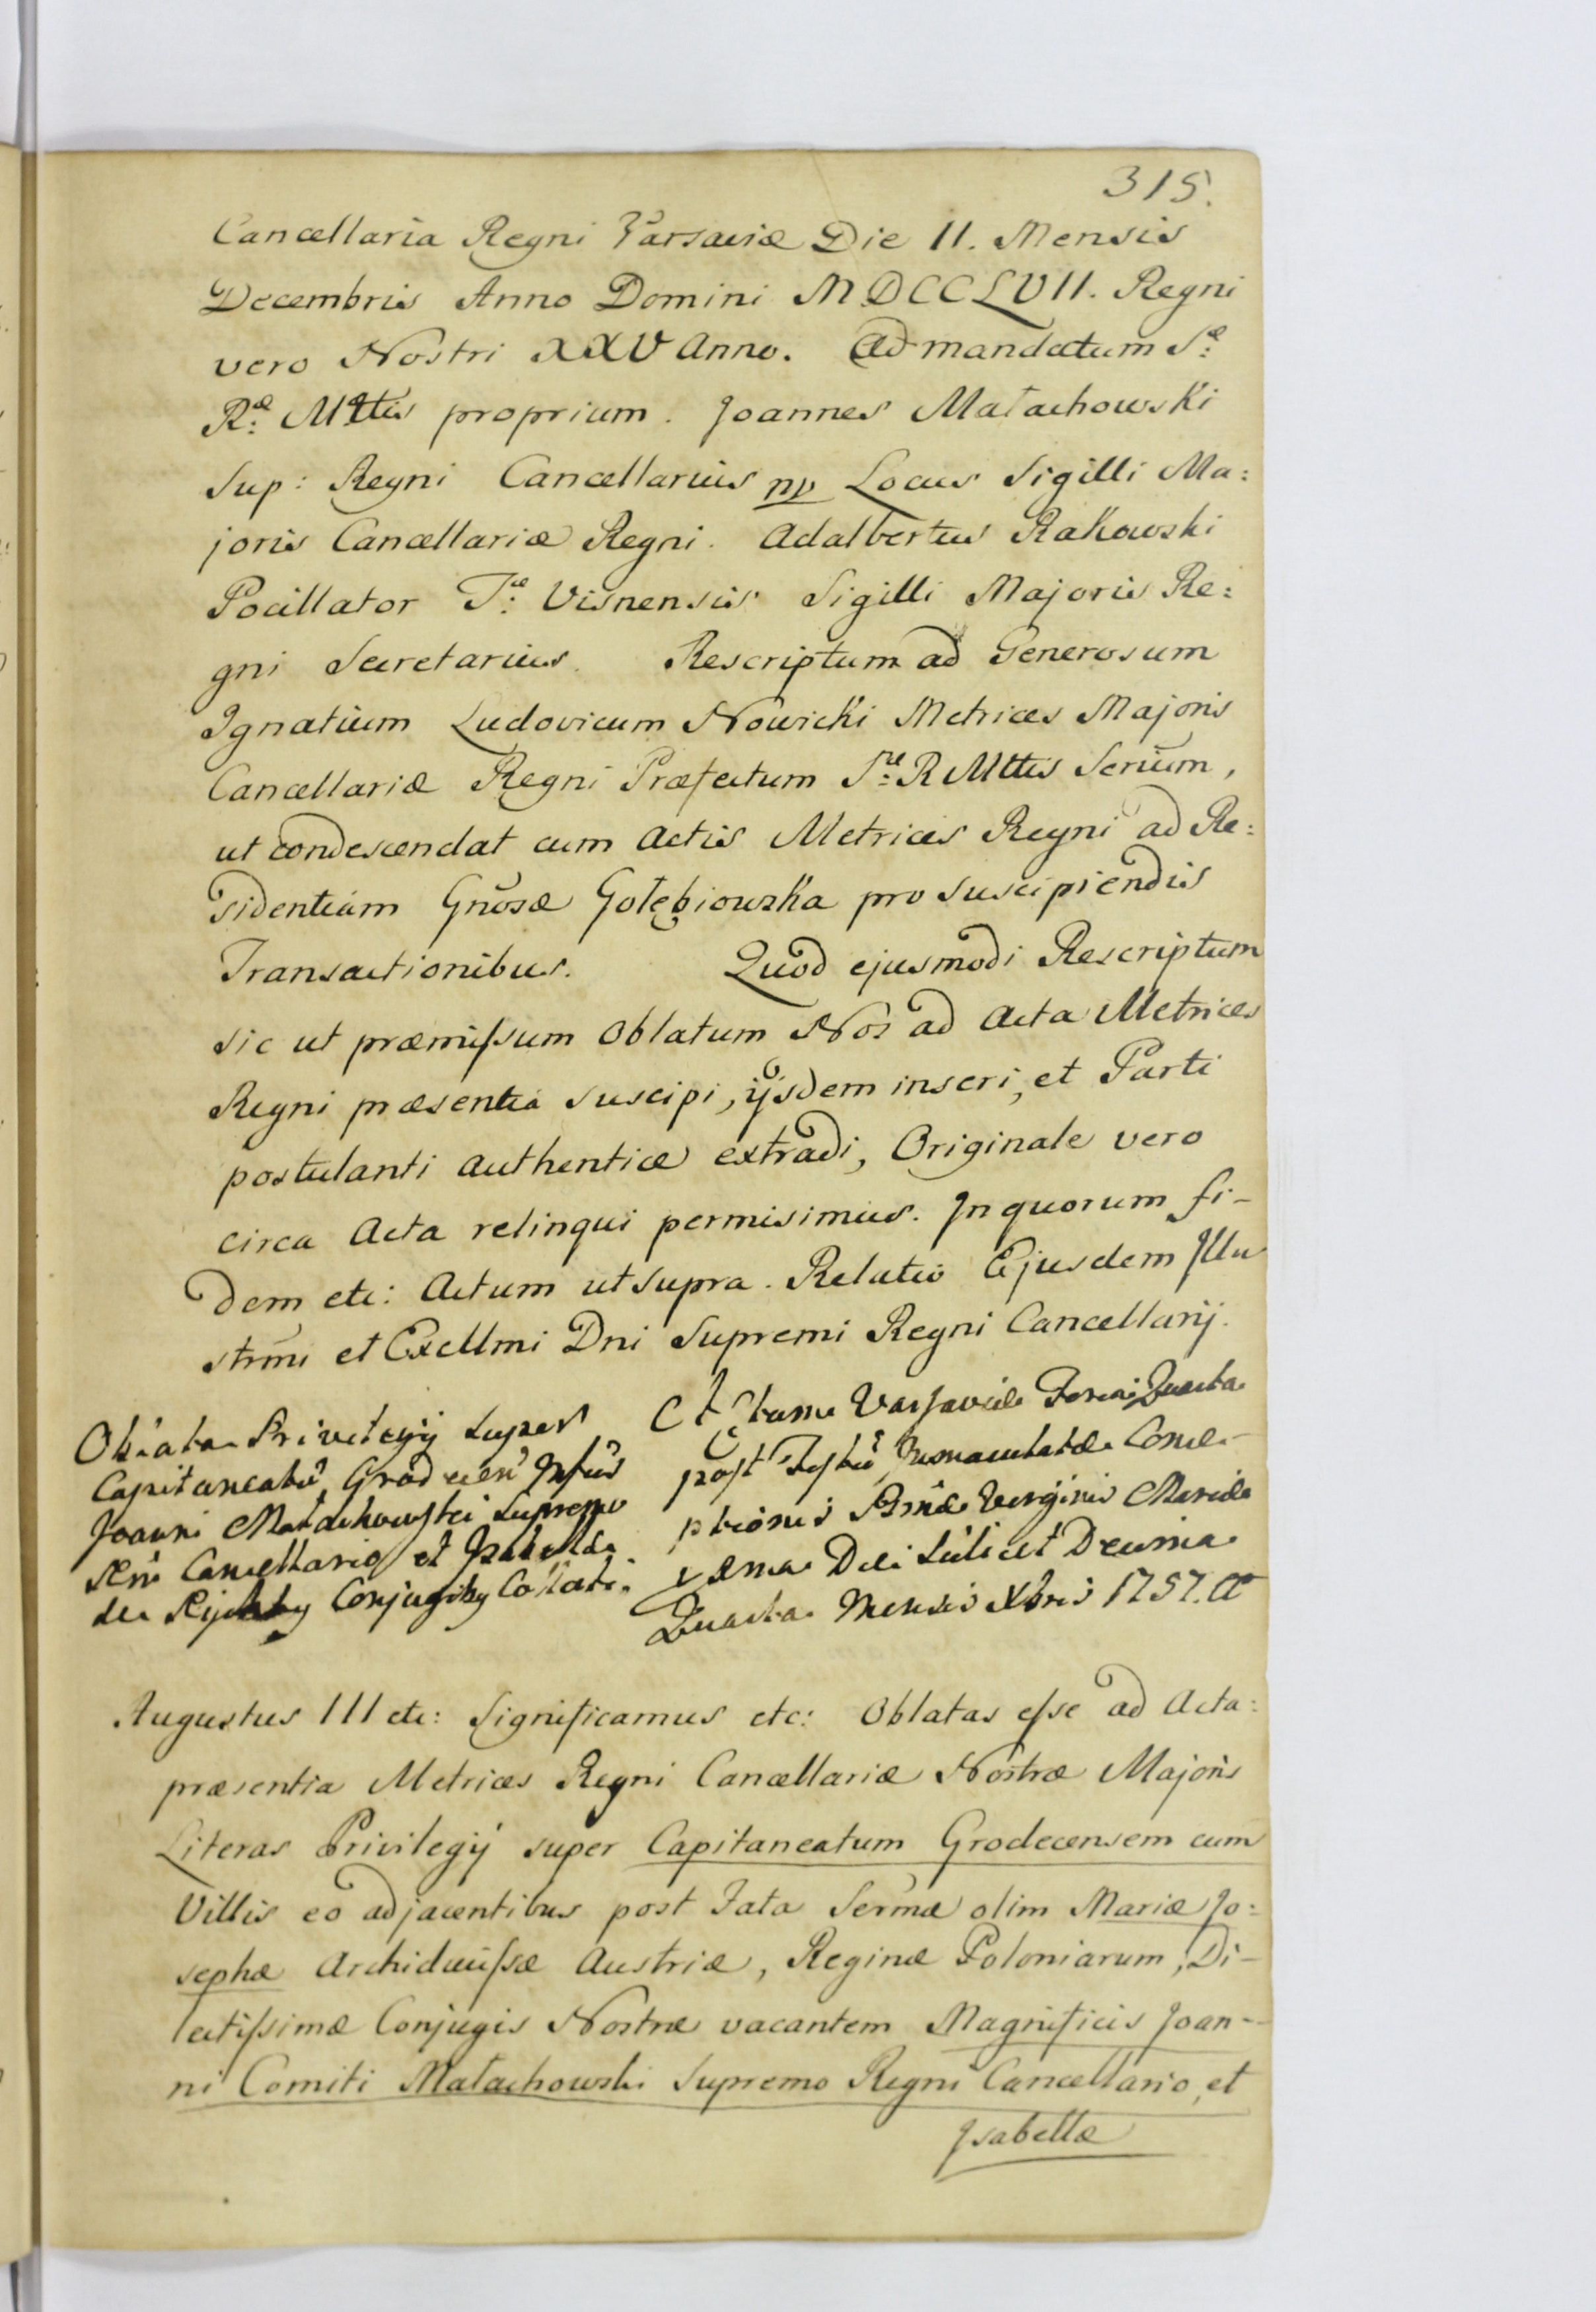 315.
Cancellaria Regni Varsaviæ Die 11. Mensis
Decembris Anno Domini MDCCLVII. Regni
vero Nostri XXV Anno. Ad mandatum S:æ
R:æ Mttis proprium. Joannes Małachowski
Sup: Regni Cancellarius mp Locus Sigilli Ma:
joris Cancellariæ Regni. Adalbertus Rakowski
Pocillator T:æ Visnensis Sigilli Majoris Re:
gni Secretarius. Rescriptum ad Generosum
Ignatium Ludovicum Nowicki Metrices Majoris
Cancellariæ Regni Præfectum S:ræ R Mttis Serium,
ut condescendat cum Actis Metrices Regni ad Re:
sidentiam Gnosæ Gołębiowska pro suscipiendis
Transactionibus. Quod ejusmodi Rescriptum
sic ut præmissum oblatum Nos ad Acta Metrices
Regni præsentia suscipi, ijsdem inseri, et Parti
postulanti authentice extradi, Originale vero
circa Acta relinqui permisimus. In quorum fi-
dem etc: Actum ut supra. Relatio Ejusdem Illu
strmi et Excllmi Dni Supremi Regni Cancellarij.
Oblata Privilegij super
Capitaneatû Grodecen̄
Joanni Małachowski Supremo
Cancellario et Isabellæ
Conjugiby Collati.
Actum Varsaviæ Feria Quarta
post Festū Immaculatæ Conce-
ptionis Bmæ Virginis Mariæ
Die scilicet Decima
Quarta Mensis Xbris 1757. A
Augustus III etc: Significamus etc: Oblatas esse ad Acta:
præsentia Metrices Regni Cancellariæ Nostræ Majoris
Literas Privilegij super Capitaneatum Grodecensem cum
Villis eo adjacentibus post Fata Sermæ olim Mariæ Jo:
sephæ Archiducissæ Austriæ, Reginæ Poloniarum, Di-
lectissimæ Conjugis Nostræ vacantem Magnificis Joan-
ni Comiti Małachowski Supremo Regni Cancellario, et
Isabellæ